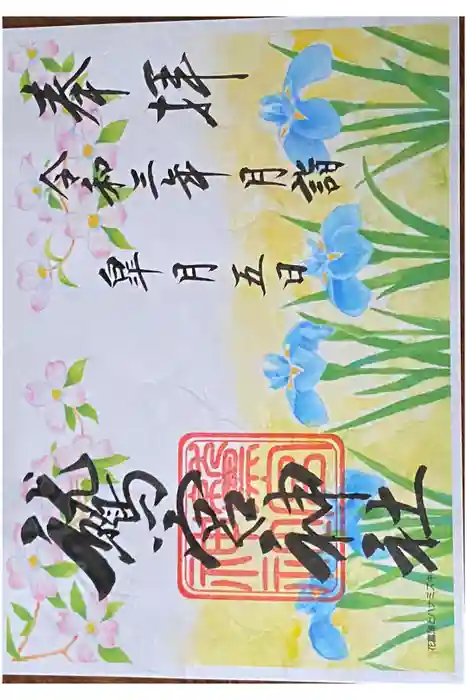 奉拝
令和三年 月詣
皐月五日
鷲宮神社
花菖蒲とハナミズキ